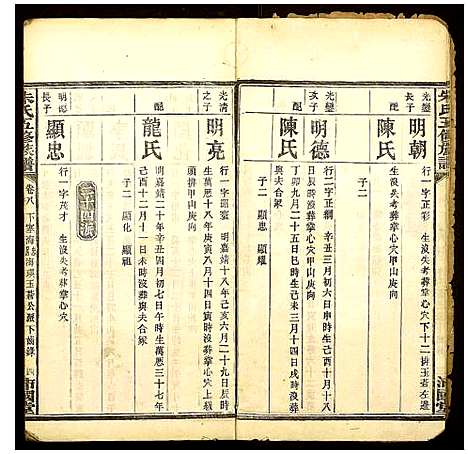 朱氏五修族譜
沛國堂
光鑾長子
明朝
行一字正彩 生沒失考葬掌心穴下十二排者左邊
配
陳氏
光鑾次子
明德
行二字正綱 辛丑三月初六日申時生己酉十月十八
日辰時沒葬掌心穴甲山庚向
配
陳氏
丁卯九月二十五日巳時生 三月十四日戌時沒葬
與夫合冢
子二 顯忠 顯耀
光清之子
明亮
行一字 明嘉靖十八年己亥六月二十九日辰時
生萬曆十八年庚寅八月十四日寅時沒葬掌心穴上
頭排甲山庚向
配
龍氏
明嘉靖二十年辛丑四月初七午時生萬曆三十七年
己酉十二月十一日未時沒葬與夫合冢
子二 顯化 顯
二十四派
明 長子
顯忠
行一字茂才 生沒失考葬掌心穴
朱氏五修族譜
卷八
下 海 海瑛玉 公派下齒錄
四
沛國堂